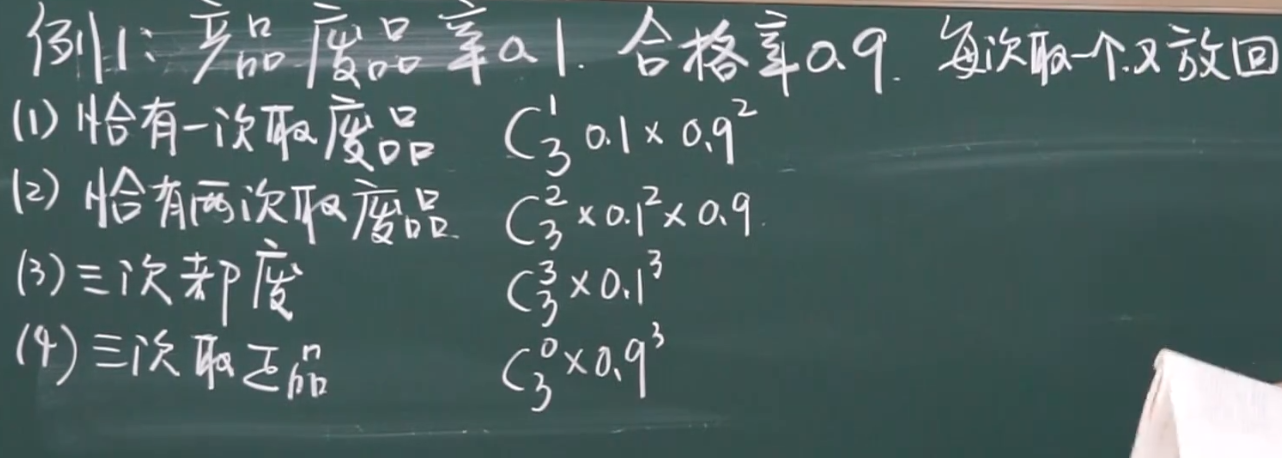 例1: 产品废品率0.1. 合格率0.9. 每次取一个.又放回
(1) 恰有一次取废品 C₃¹ 0.1 × 0.9²
(2) 恰有两次取废品 C₃² × 0.1² × 0.9.
(3) 三次都废 C₃³ × 0.1³
(4) 三次取正品 C₃⁰ × 0.9³